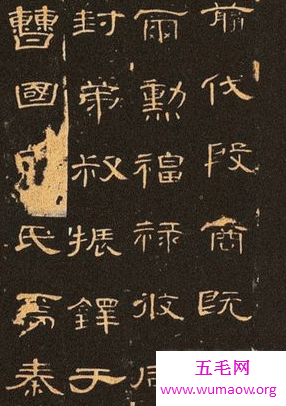 翦伐殷商既
爾勳福祿攸同
封弟叔振鐸于
曹國氏焉秦
五毛网
www.wumaow.org